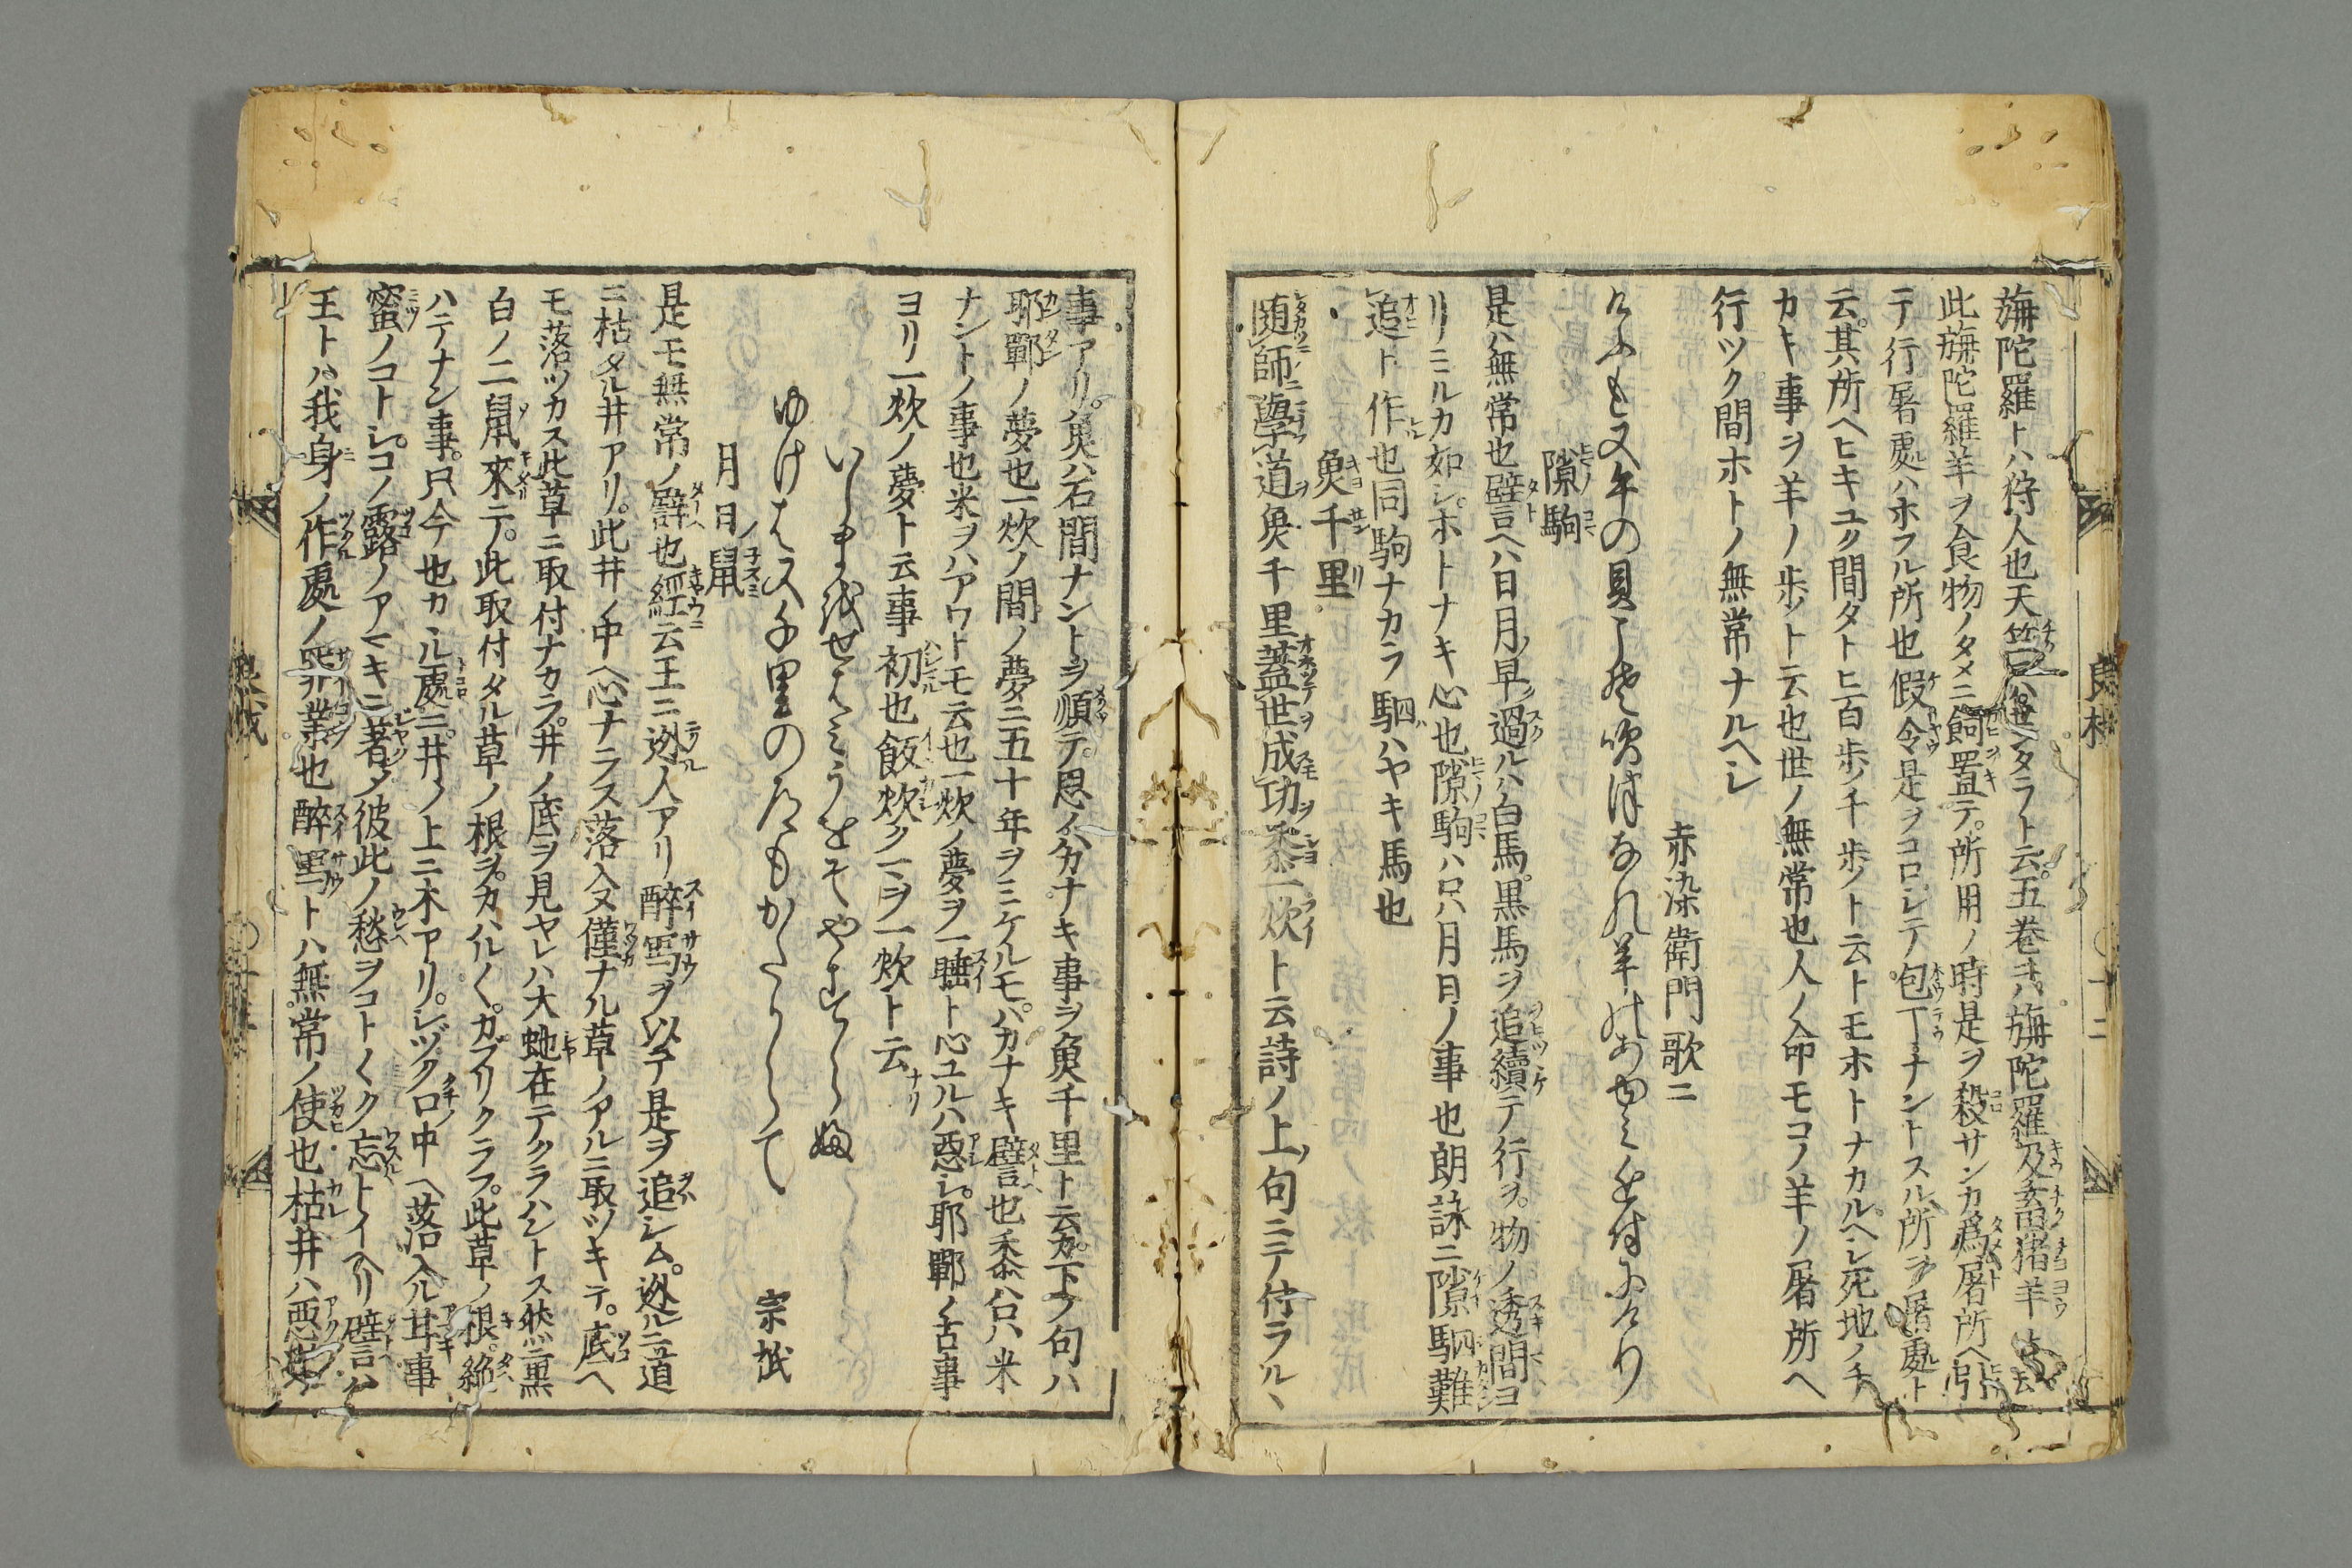 旃陀羅トハ狩人也天竺ニハセンダラト云五巻ニハ旃陀羅及畜猪羊
此旃陀羅羊ヲ食物ノタメニ飼置テ所用ノ時是ヲ殺サンカ為屠所ヘ引
テ行屠處ハホフル所也假令是ヲコロシテ包丁ナントスル所ヲ屠處ト
云其所ヘヒキユク間タトヒ百歩ノ千歩ノト云トモホトナカルヘシ死地ノチ
カキ事ヲ羊ノ歩ノト云也世ノ無常也人ノ命モコノ羊ノ屠所ヘ
行ツク間ホトノ無常ナルヘシ
赤染衛門歌ニ
けふも又午の貝こそ吹つなれ羊のあゆみちか付にけり
隙駒
是ハ無常也譬ヘハ日月ノ早ク過ルハ白馬黒馬ヲ追續テ行ヲ物ノ透間ヨ
リミルカ如シホトナキ心也隙駒ハ只ハ月日ノ事也朗詠ニ隙駟難
追ト作也同駒ナカラ駟ハハヤキ馬也
魚千里
随師學道魚千里蓋世成功黍一炊ト云詩ノ上ノ句ニテ付ラルヽ
事アリ魚ハ石間ナントヲ順テ思ノハカナキ事ヲ魚千里ト云カ下ノ句ハ
邯鄲ノ夢也一炊ノ間ノ夢ニ五十年ヲミケルモハカナキ譬也黍ハ只ハ米
ナントノ事也米ヲハアワトモ云也一炊ノ夢ヲ一睡ト心ユルハ惡シ邯鄲ノ古事
ヨリ一炊ノ夢ト云事初也飯炊ク一ヲ一炊ト云
いしまをせはみうをそやすらふ
ゆけは又千里のたもかたらして
宗祇
月日ノ鼠
是モ無常ノ譬也經云王ニ逃人アリ醉象ヲ以テ是ヲ追シム逃ルニ道
ニ枯タル井アリ此井ノ中ヘ心ナラス落入又僅ナル草ノアルニ取ツキテ底ヘ
モ落ツカス此草ニ取付ナカラ井ノ底ヲ見ヤレハ大蛇在テクラハントス然ニ黒
白ノ二鼠來テ此取付タル草ノ根ヲカハル〱カブリクラフ此草ノ根絶
ハテナン事只今也カヽル處ニ井ノ上ニ木アリシヅク口中ヘ落入ル甘事
蜜ノコトシコノ露ノアマキニ著メ彼此ノ愁ヲコト〱ク忘トイヘリ譬ハ
王トハ我身ノ作處ノ罪業也醉象トハ無常ノ使也枯井ハ惡